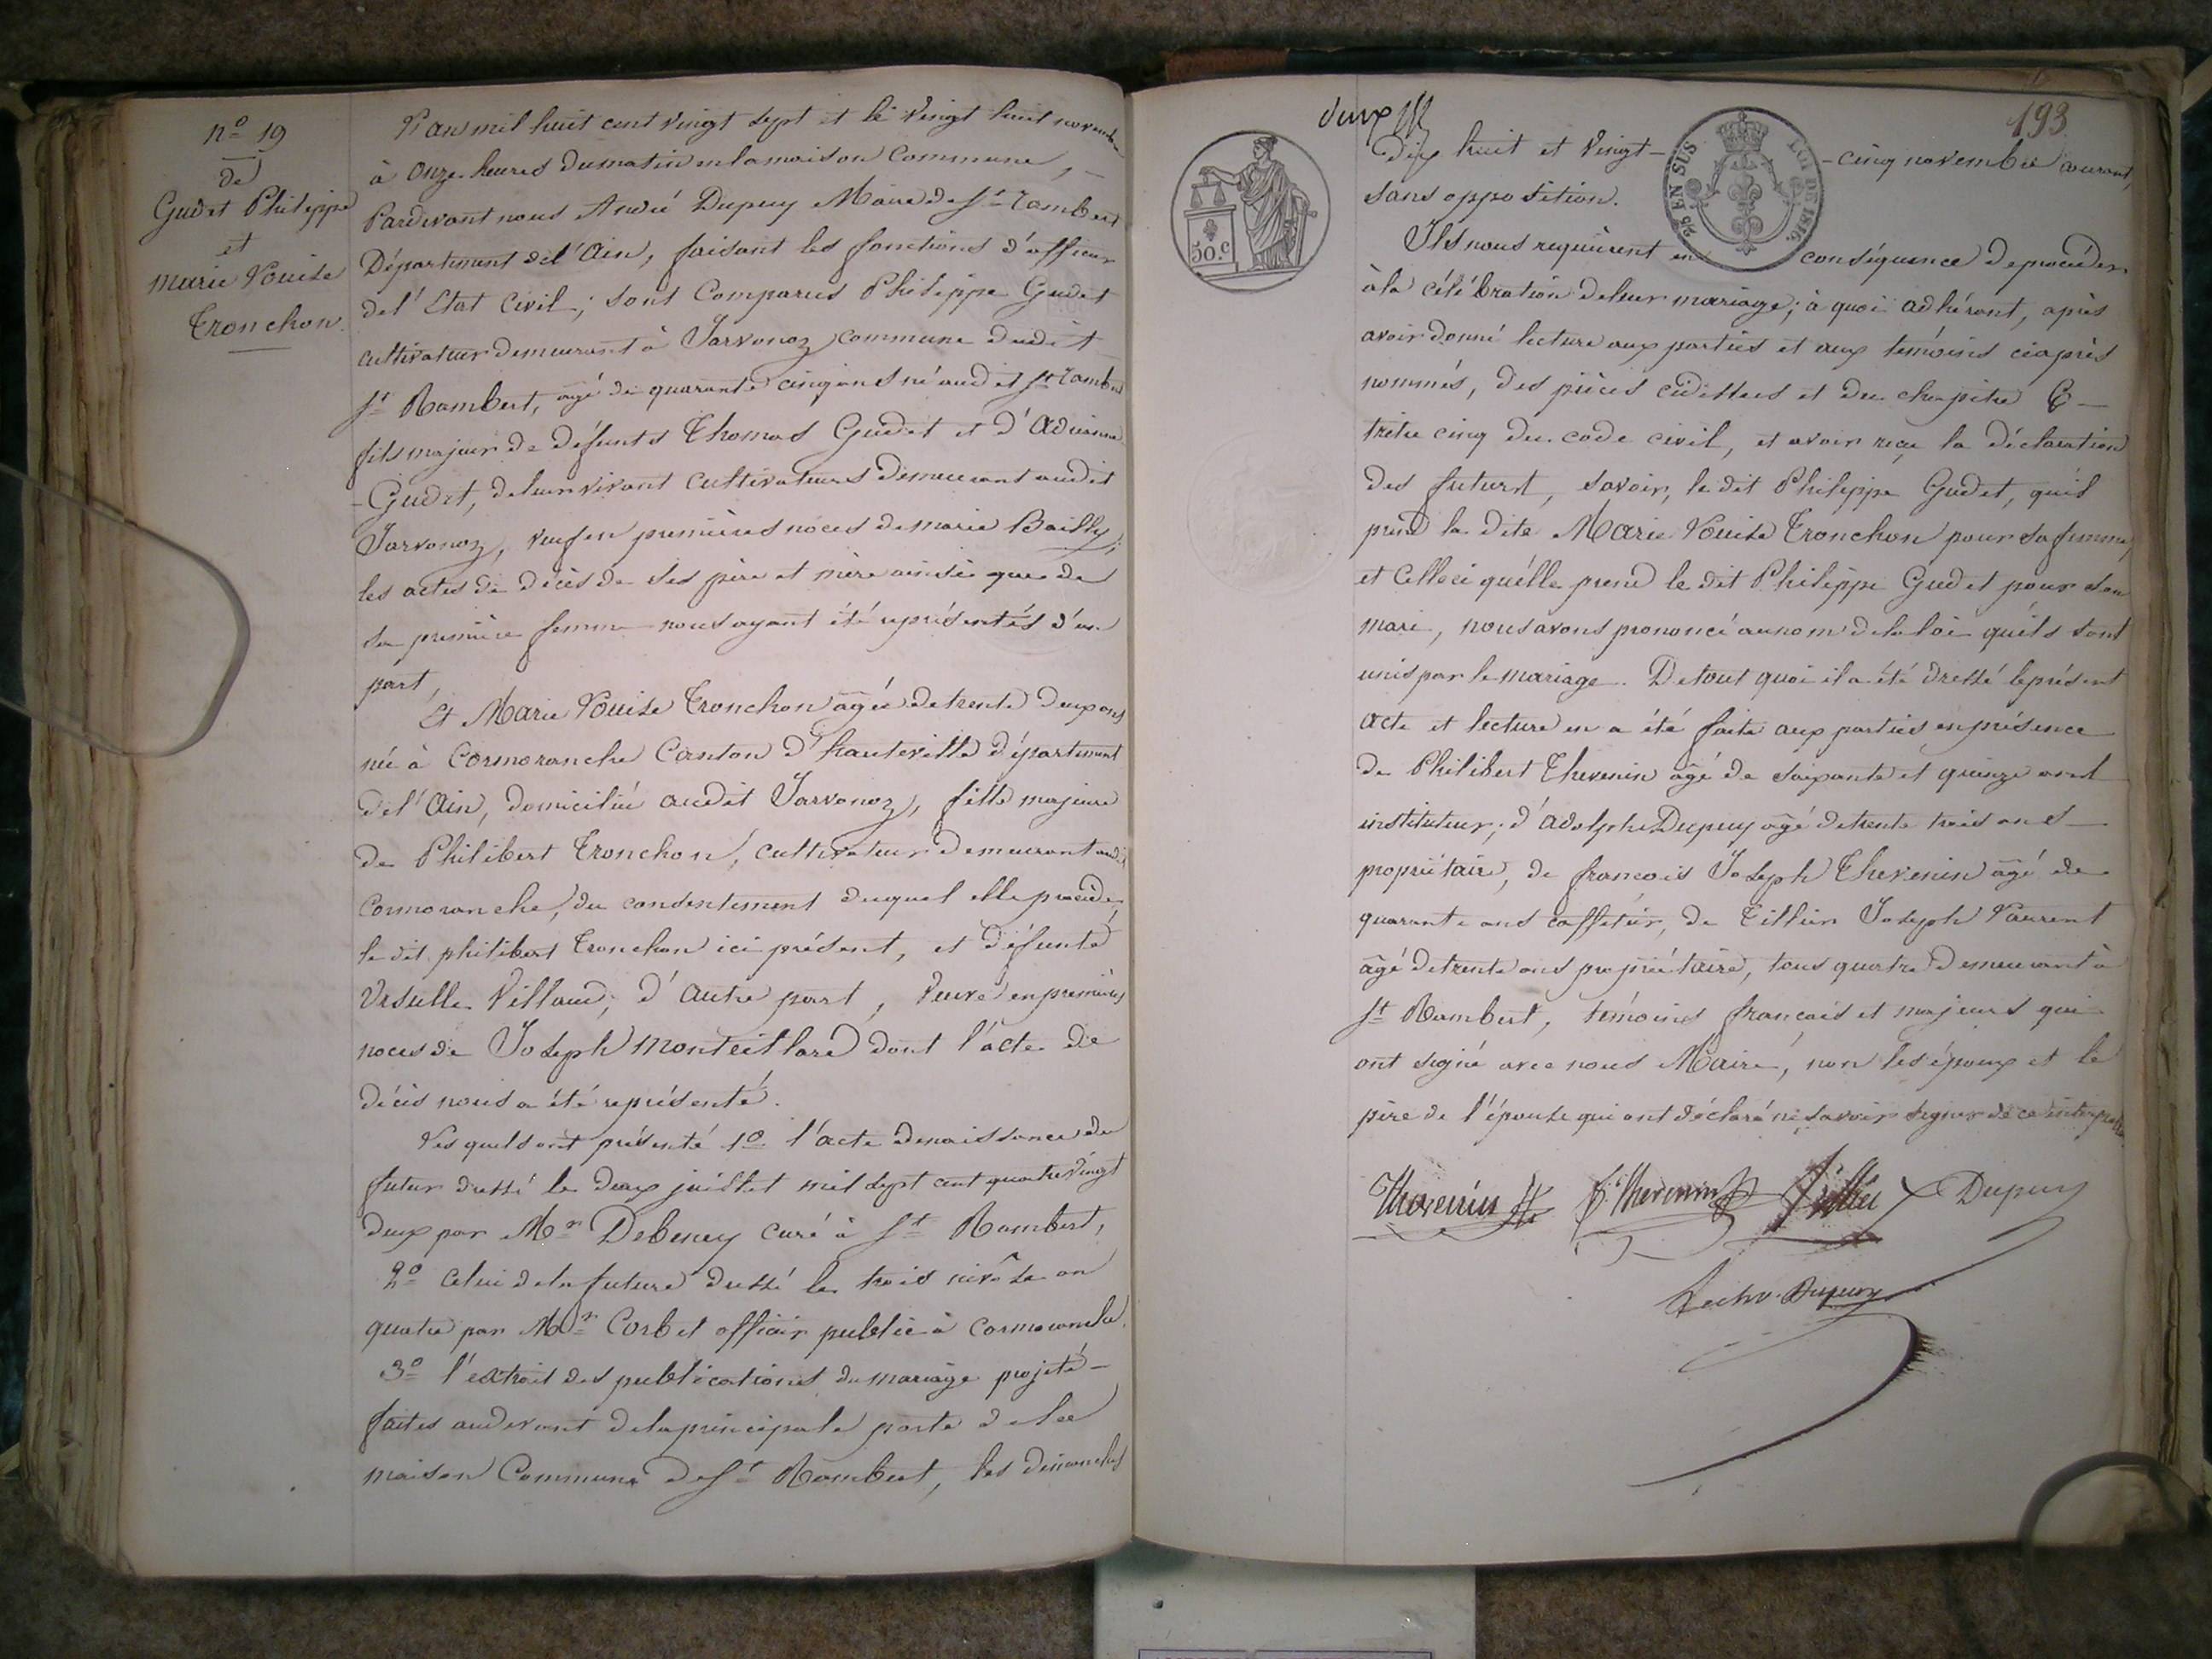 nº 19
de
Gudet Philippe
et
Marie Louise
Tronchon
L'an mil huit cent vingt sept et le vingt huit novembre
à onze heures du matin en la maison Commune,
Pardevant nous André Dupuy Maire de St Rambert
Département de l'Ain, faisant les fonctions d'officier
de l'Etat Civil; sont Comparus Philippe Gudet
cultivateur demeurant à Javornoz commune dudit
St Rambert, âgé de quarante cinq ans né audit St Rambert
fils majeur de défunts Thomas Gudet et d'Adrianne
Gudet, de leur vivant cultivateurs demeurant audit
Javornoz, veuf en premières noces de marie Bailly;
les actes de décès de ses père et mère ainsi que de
sa première femme nous ayant été représentés d'une
part,
Et Marie Louise Tronchon âgée de trente deux ans
née à Cormoranche Canton d'hauteville département
de l'Ain, domiciliée audit Javornoz, fille majeure
de Philibert Tronchon, cultivateur demeurant audit
Cormoranche, du consentement duquel elle procède,
le dit philibert Tronchon ici présent, et défunte
Ursulle Villaud; d'autre part, veuve en premières
noces de Joseph Monteillard dont l'acte de
décès nous a été représenté.
Les quels ont présenté 1º l'acte de naissance du
futur dressé le deux juillet mil sept cent quatre vingt
deux par Mr Debeney curé à St Rambert,
2º celui de la future dressé le trois nivôse an
quatre par Mr Corbet officier public à Cormoranche.
3º l'extrait des publications du mariage projeté
faites audevant de la principale porte de la
maison Commune de St Rambert, les dimanches
deux
193
50.c
25 EN SUS
LOI DE 1816.
dix huit et vingt-cinq novembre courant,
sans opposition.
Ils nous requièrent en conséquence de procéder
à la célébration de leur mariage; à quoi adhérant, après
avoir donné lecture aux parties et aux témoins ciaprès
nommés, des pièces cidessus et du chapitre 6
titre cinq du code civil, et avoir reçu la déclaration
des futurs, savoir, le dit Philippe Gudet, qu'il
prend la dite Marie Louise Tronchon pour sa femme,
et celleci qu'elle prend le dit Philippe Gudet pour son
mari, nous avons prononcé au nom de la loi qu'ils sont
unis par le mariage. De tout quoi il a été dressé le présent
acte et lecture en a été faite aux parties en présence
de Philibert Thevenin âgé de soixante et quinze ans
instituteur; d'Adolphe Dupuy âgé de trente trois ans
propriétaire, de francois Joseph Thevenin âgé de
quarante ans caffetier, de Tillier Joseph Laurent
âgé de trente ans propriétaire, tous quatre demeurant à
St Rambert, témoins francais et majeurs qui
ont signé avec nous Maire, non les époux et le
père de l'épouse qui ont déclaré ne savoir signer de ce interpellés
Thevenin F. Thevenin Tillier Dupuy
Dupuy